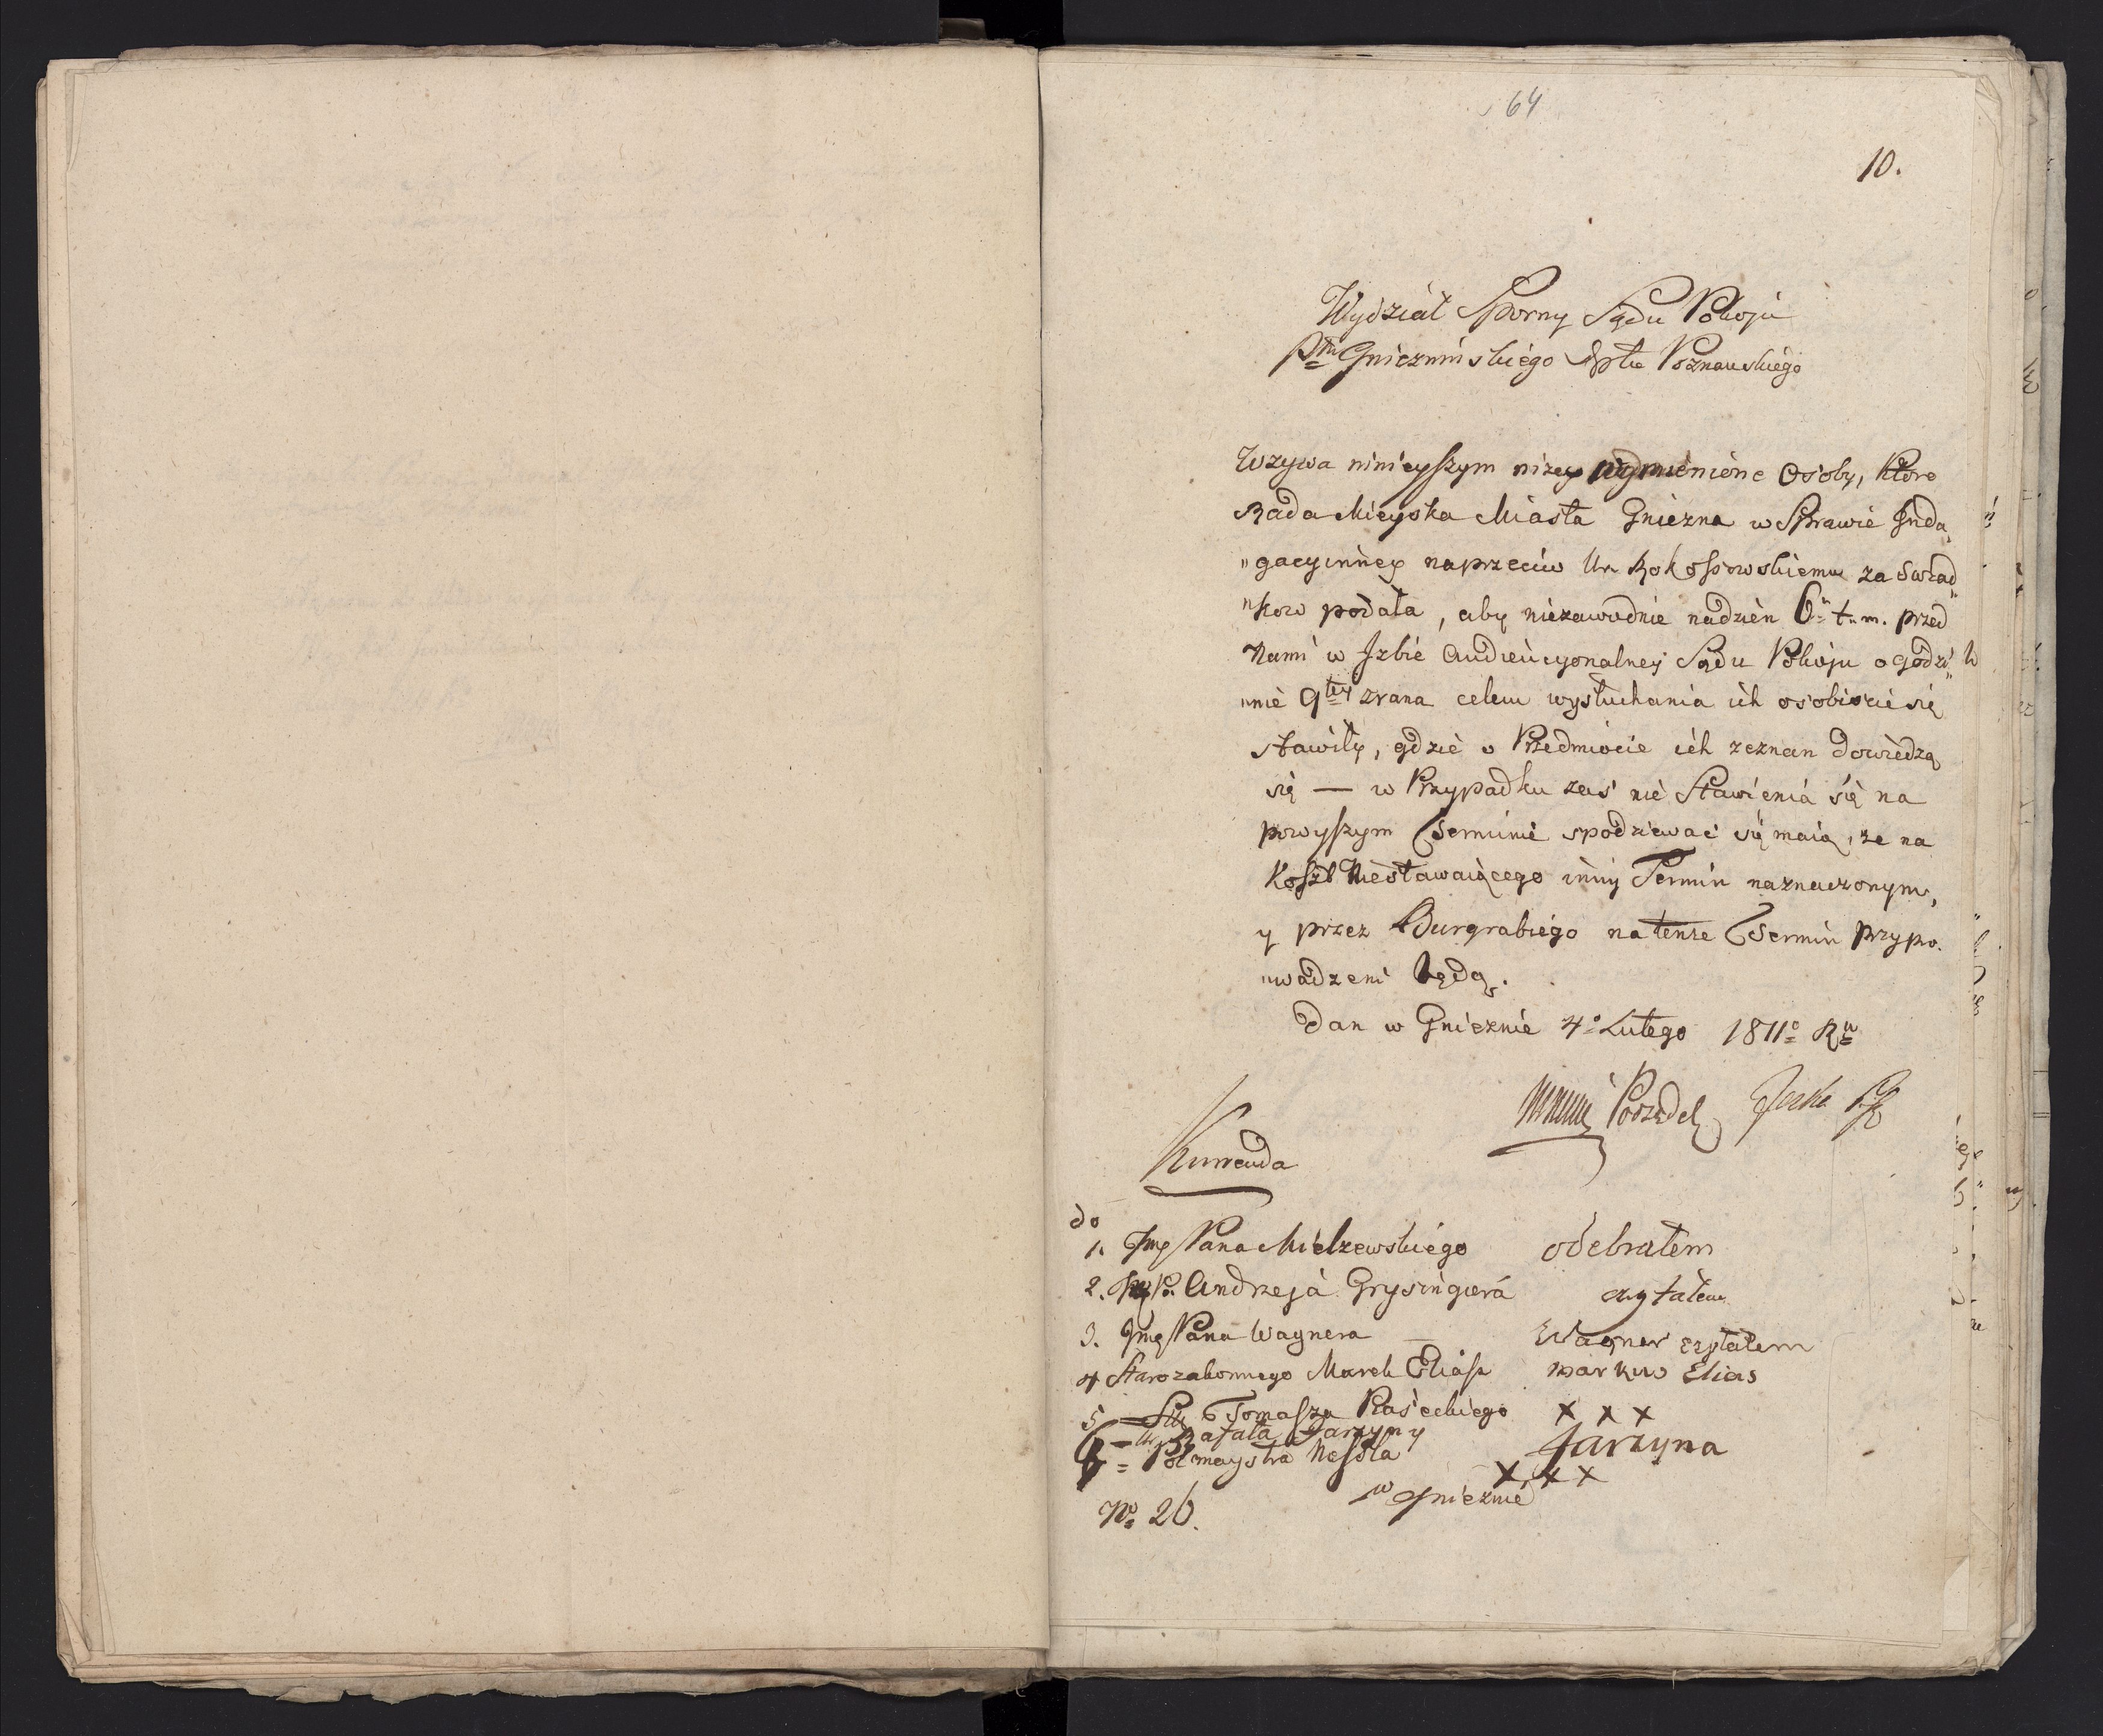 64
10.
Wydział Sporny Sądu Pokoju
Ptu Gnieznińskiego Dptu Poznanskiego
Wzywa ninieyszym niżey wymienione Osoby, które
Rada Mieyska Miasta Gniezna w Sprawie Inda„
„gacyinney naprzeciw Ur. Rokossowskiemu za Swiad„
„kow podała, aby niezawodnie nadzien 6n t. m. przed
Nami w Izbie Audiencyonalney Sądu Pokoju o godzi„
„nie 9tey zrana celem wysłuchania ich osobiscie się
stawiły, gdzie o Przedmiocie ich zeznan dowiedzą
się — w Przypadku zaś nie Stawienia się na
powyszym Terminie spodziewać się maią, ze na
Koszt Niestawaiącego inny Termin naznaczonym,
y przez Burgrabiego na tenze Termin przypro„
„wadzeni będą.
Dan w Gnieznie 4o Lutego 1811o Ru
Kurenda
do
1. Jmę Pana Mielzewskiego odebrałem
2. P. Andrzeja Grysingiera czytałem
3. Jmę Pana Wagnera — Wagner czytałem
4 Starozakonnego Marek Eliasz Markus Elias
5 — Tomasza Rasieckiego x x x
6 — Ur. Rafała Jarzyny Jarzyna
7 = Pocmaystra Nessla x x x
w Gnieznie
No 26.